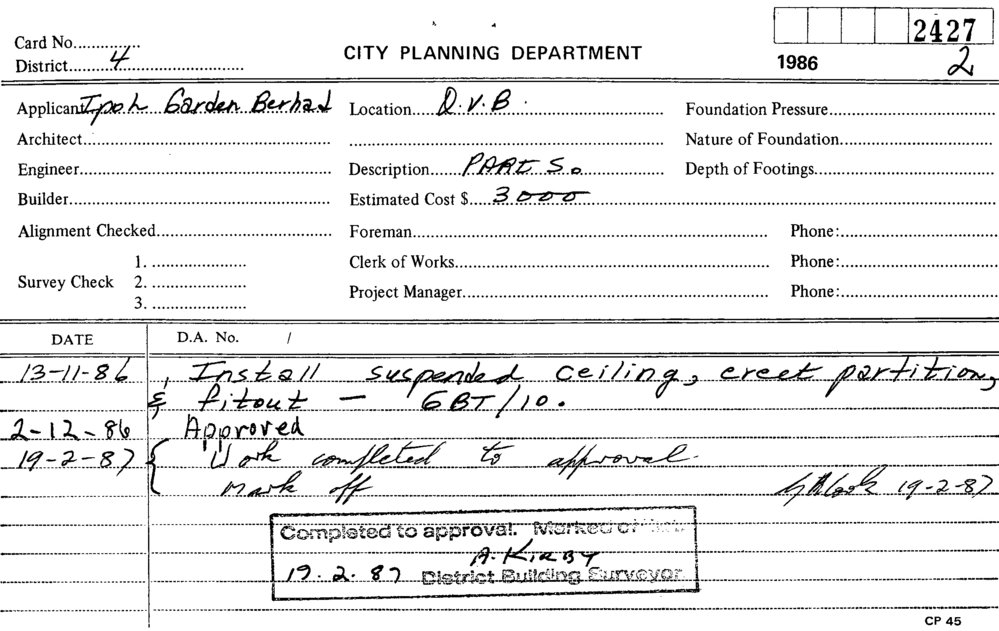 2427
Card No.
CITY PLANNING DEPARTMENT
District 4
1986 2
Applicant Ipoh Garden Berhad Location Q.V.B. Foundation Pressure
Architect Nature of Foundation
Engineer Description PART S. Depth of Footings
Builder Estimated Cost $ 3000
Alignment Checked Foreman Phone:
1. Clerk of Works Phone:
Survey Check 2.
Project Manager Phone:
3.
DATE D.A. No. /
13-11-86 Install suspended ceiling, erect partition,
& fitout – GBT/10.
2-12-86 Approved
19-2-87 Work completed to approval.
Mark off 19-2-87
Completed to approval. Marked off
A. KIRBY
19.2.87 District Building Surveyor
CP 45